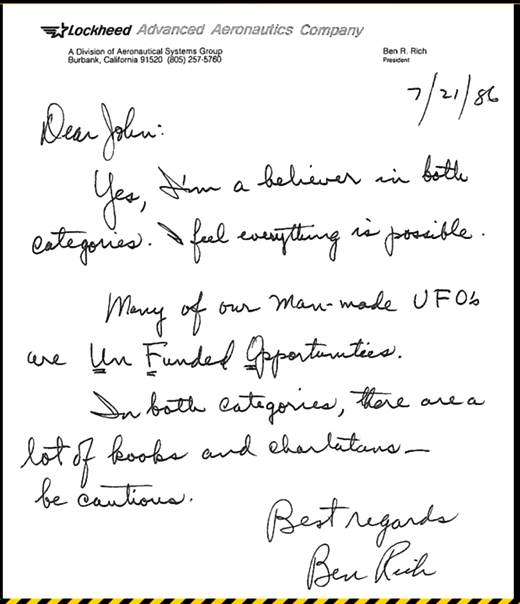 Lockheed Advanced Aeronautics Company
A Division of Aeronautical Systems Group
Burbank, California 91520 (805) 257-5760
Ben R. Rich
President
7/21/86
Dear John:
Yes, I'm a believer in both
categories. I feel everything is possible.
Many of our man-made UFO's
are Un Funded Opportunities.
In both categories, there are a
lot of kooks and charlatans—
be cautious.
Best regards
Ben Rich